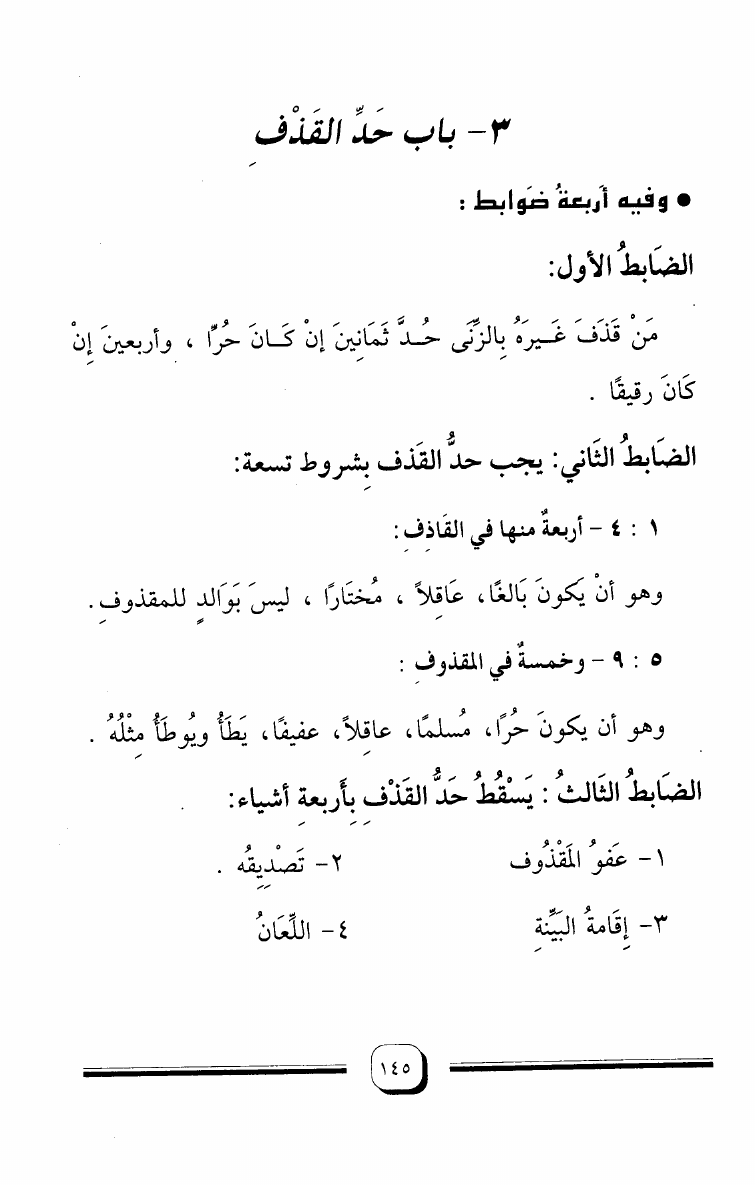 ٣- باب حَدِّ القَذْفِ
● وفيه أربعةُ ضَوابط :
الضَابطُ الأول:
مَنْ قَذَفَ غَـيرَهُ بِالزِّنَى حُـدَّ ثَمَانِينَ إنْ كَـانَ حُرًّا ، وأربعينَ إنْ
كَانَ رقيقًا .
الضَابطُ الثَاني: يجب حدُّ القَذفِ بشروط تسعة:
١ : ٤ - أربعةٌ منها في القَاذِفِ:
وهو أنْ يَكونَ بَالغًا، عَاقِلاً ، مُختَارًا ، ليسَ بَوَالدٍ للمقذوفِ.
٥ : ٩ - وخمسةٌ في المقذوفِ :
وهو أن يكونَ حُرًا، مُسلمًا، عاقِلاً، عفيفًا، يَطَأُ ويُوطَأُ مِثْلُهُ .
الضَابطُ الثَالثُ : يَسْقُطُ حَدُّ القَذْفِ بِأَربعةِ أشياء:
١- عَفوُ المَقْذُوف ٢- تَصْدِيِقُه .
٣- إقَامةُ البَيِّنةِ ٤- اللِّعَانُ
١٤٥